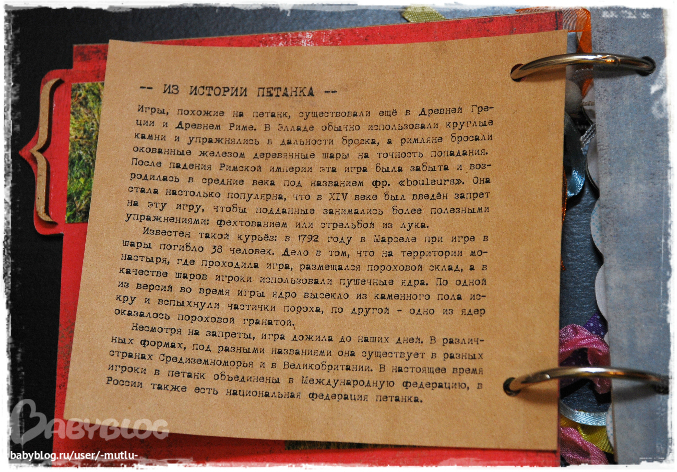 -- ИЗ ИСТОРИИ ПЕТАНКА --
Игры, похожие на петанк, существовали ещё в Древней Гре-
ции и Древнем Риме. В Элладе обычно использовали круглые
камни и упражнялись в дальности броска, а римляне бросали
окованные железом деревянные шары на точность попадания.
После падения Римской империи эта игра была забыта и воз-
родилась в средние века под названием фр. «bouleurs». Она
стала настолько популярна, что в XIV веке был введён запрет
на эту игру, чтобы подданные занимались более полезными
упражнениями: фехтованием или стрельбой из лука.
Известен такой курьёз: в 1792 году в Марселе при игре в
шары погибло 38 человек. Дело в том, что на территории мо-
настыря, где проходила игра, размещался пороховой склад, а в
качестве шаров игроки использовали пушечные ядра. По одной
из версий во время игры ядро высекло из каменного пола ис-
кру и вспыхнули частички пороха, по другой - одно из ядер
оказалось пороховой гранатой.
Несмотря на запреты, игра дожила до наших дней. В различ-
ных формах, под разными названиями она существует в разных
странах Средиземноморья и в Великобритании. В настоящее время
игроки в петанк объединены в Международную федерацию, в
России также есть национальная федерация петанка.
BABYBLOG
babyblog.ru/user/-mutlu-